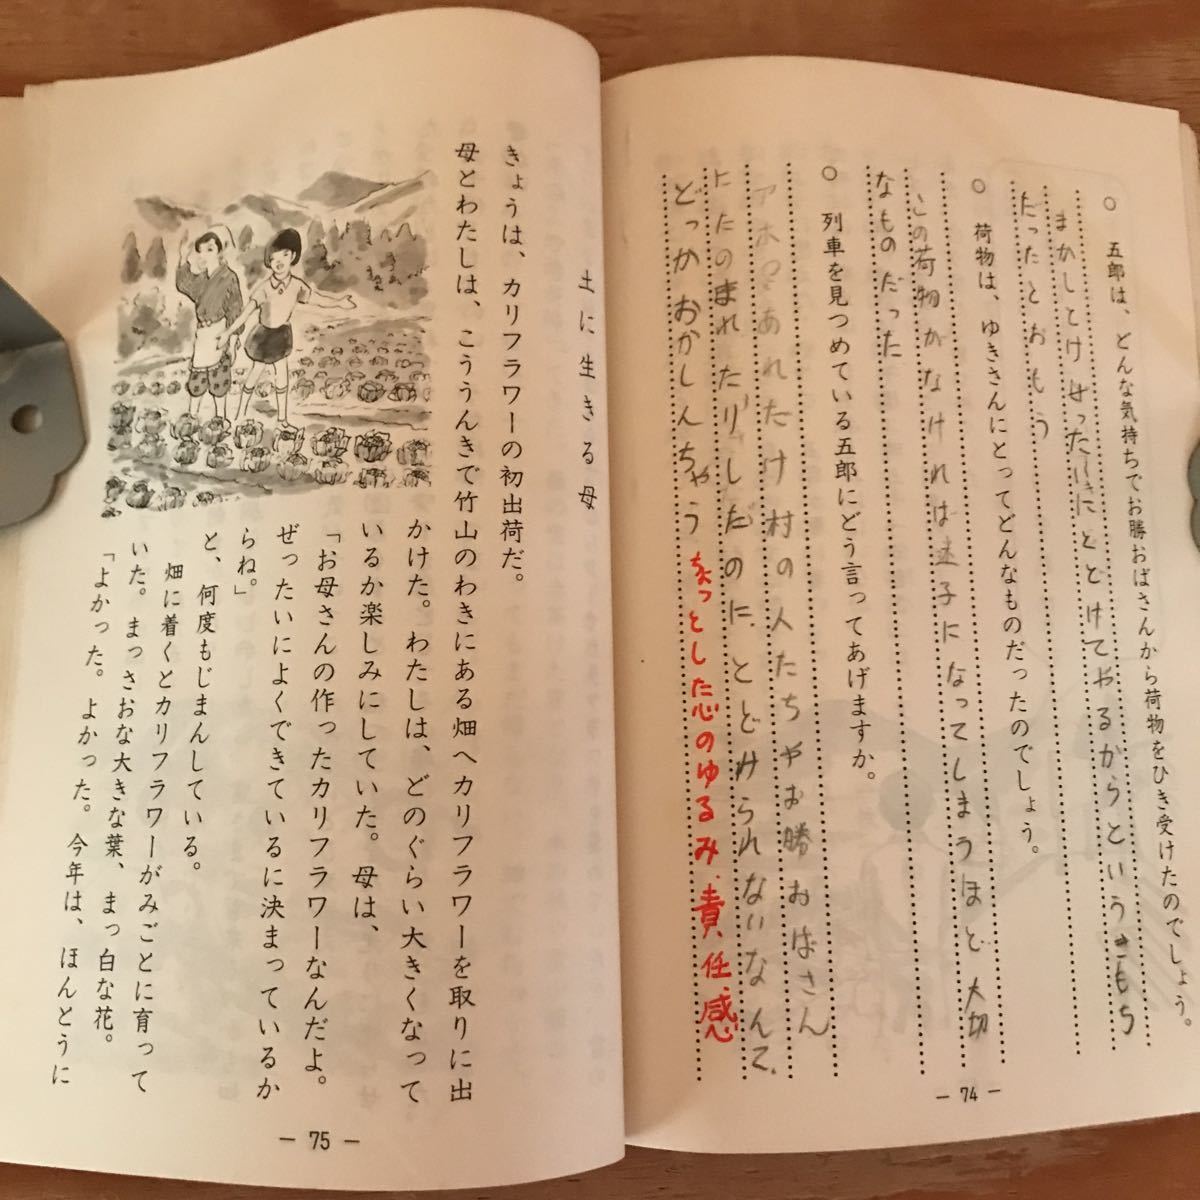 ○ 五郎は、どんな気持ちでお勝おばさんから荷物をひき受けたのでしょう。
まかしとけ ぜったいにとどけてやるからというきもち
だったとおもう
○ 荷物は、ゆきさんにとってどんなものだったのでしょう。
この荷物がなければ迷子になってしまうほど大切
なものだった
○ 列車を見つめている五郎にどう言ってあげますか。
アホ あれたけ村の人たちやお勝おばさん
にたのまれたりしたのに、とどけられないなんて、
どっかおかしんちゃう
ちょっとした心のゆるみ、責任感
— 74 —
土に生きる母
きょうは、カリフラワーの初出荷だ。
母とわたしは、こううんきで竹山のわきにある畑へカリフラワーを取りに出
かけた。わたしは、どのぐらい大きくなって
いるか楽しみにしていた。母は、
「お母さんの作ったカリフラワーなんだよ。
ぜったいによくできているに決まっているか
らね。」
と、何度もじまんしている。
畑に着くとカリフラワーがみごとに育って
いた。まっさおな大きな葉、まっ白な花。
「よかった。よかった。今年は、ほんとうに
— 75 —